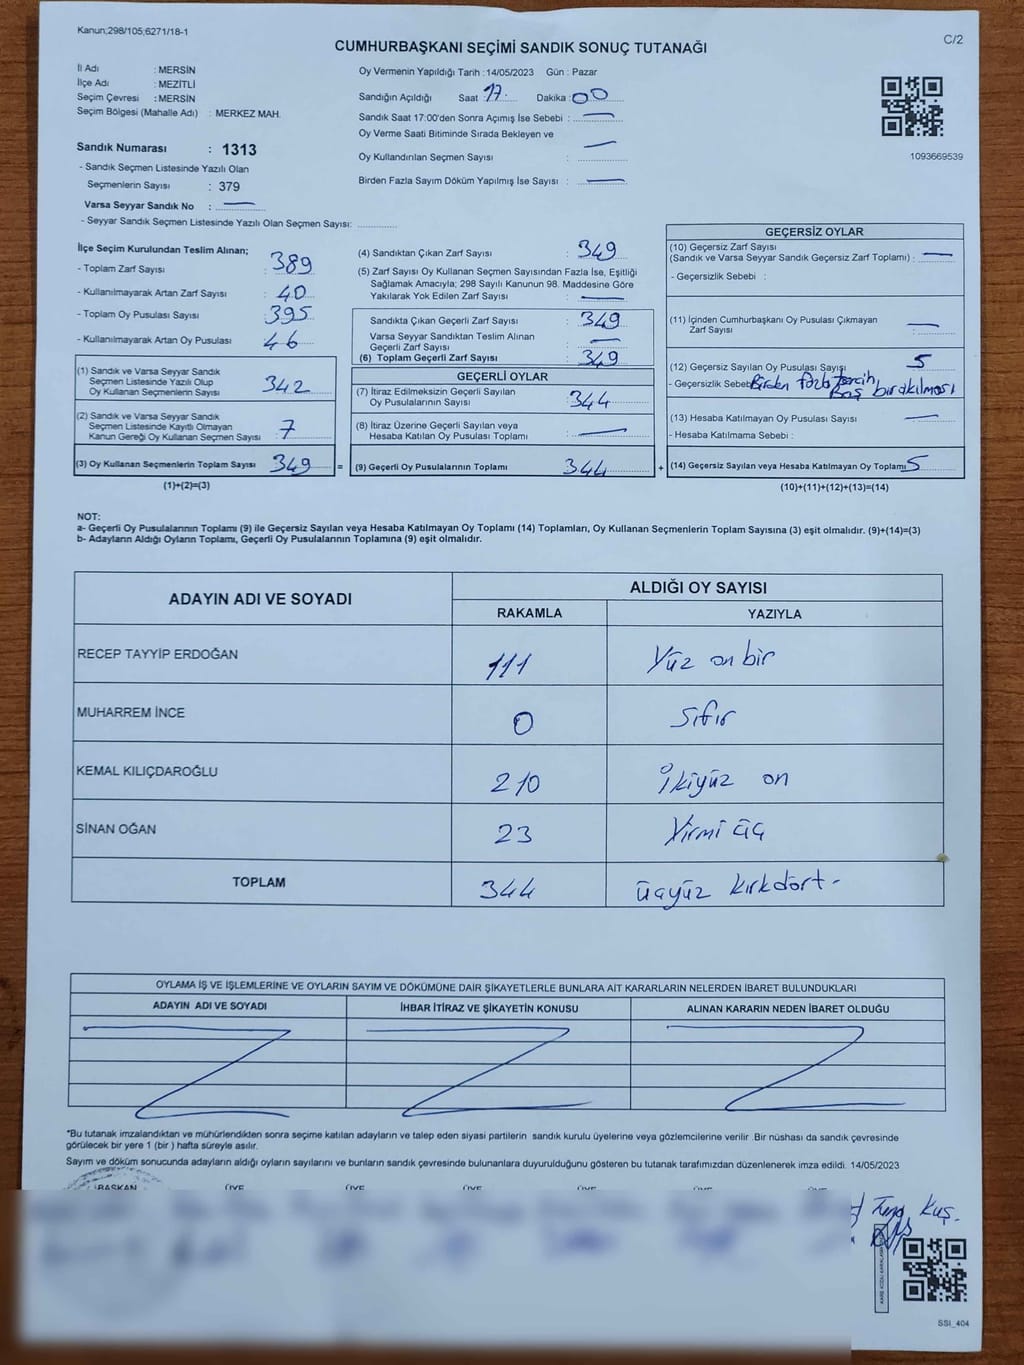 Kanun;298/105;6271/18-1
C/2
CUMHURBAŞKANI SEÇİMİ SANDIK SONUÇ TUTANAĞI
İl Adı : MERSİN
İlçe Adı : MEZİTLİ
Seçim Çevresi : MERSİN
Seçim Bölgesi (Mahalle Adı) : MERKEZ MAH.
Oy Vermenin Yapıldığı Tarih :14/05/2023 Gün : Pazar
Sandığın Açıldığı Saat 17 Dakika :00
Sandık Saat 17:00'den Sonra Açımış İse Sebebi : —
Oy Verme Saati Bitiminde Sırada Bekleyen ve
Oy Kullandırılan Seçmen Sayısı : —
Birden Fazla Sayım Döküm Yapılmış İse Sayısı : —
1093669539
Sandık Numarası : 1313
- Sandık Seçmen Listesinde Yazılı Olan
Seçmenlerin Sayısı : 379
Varsa Seyyar Sandık No : —
- Seyyar Sandık Seçmen Listesinde Yazılı Olan Seçmen Sayısı:
İlçe Seçim Kurulundan Teslim Alınan;
- Toplam Zarf Sayısı : 389
- Kullanılmayarak Artan Zarf Sayısı : 40
- Toplam Oy Pusulası Sayısı : 395
- Kullanılmayarak Artan Oy Pusulası : 46
(1) Sandık ve Varsa Seyyar Sandık
Seçmen Listesinde Yazılı Olup
Oy Kullanan Seçmenlerin Sayısı : 342
(2) Sandık ve Varsa Seyyar Sandık
Seçmen Listesinde Kayıtlı Olmayan
Kanun Gereği Oy Kullanan Seçmen Sayısı : 7
(3) Oy Kullanan Seçmenlerin Toplam Sayısı : 349 =
(1)+(2)=(3)
(4) Sandıktan Çıkan Zarf Sayısı : 349
(5) Zarf Sayısı Oy Kullanan Seçmen Sayısından Fazla İse, Eşitliği
Sağlamak Amacıyla; 298 Sayılı Kanunun 98. Maddesine Göre
Yakılarak Yok Edilen Zarf Sayısı : —
Sandıkta Çıkan Geçerli Zarf Sayısı : 349
Varsa Seyyar Sandıktan Teslim Alınan
Geçerli Zarf Sayısı : —
(6) Toplam Geçerli Zarf Sayısı : 349
GEÇERLİ OYLAR
(7) İtiraz Edilmeksizin Geçerli Sayılan
Oy Pusulalarının Sayısı : 344
(8) İtiraz Üzerine Geçerli Sayılan veya
Hesaba Katılan Oy Pusulası Toplamı : —
(9) Geçerli Oy Pusulalarının Toplamı : 344 +
GEÇERSİZ OYLAR
(10) Geçersiz Zarf Sayısı
(Sandık ve Varsa Seyyar Sandık Geçersiz Zarf Toplamı) : —
- Geçersizlik Sebebi :
(11) İçinden Cumhurbaşkanı Oy Pusulası Çıkmayan
Zarf Sayısı : —
(12) Geçersiz Sayılan Oy Pusulası Sayısı : 5
- Geçersizlik Sebebi : Birden fazla tercih
Boş bırakılması
(13) Hesaba Katılmayan Oy Pusulası Sayısı : —
- Hesaba Katılmama Sebebi :
(14) Geçersiz Sayılan veya Hesaba Katılmayan Oy Toplamı: 5
(10)+(11)+(12)+(13)=(14)
NOT:
a- Geçerli Oy Pusulalarının Toplamı (9) ile Geçersiz Sayılan veya Hesaba Katılmayan Oy Toplamı (14) Toplamları, Oy Kullanan Seçmenlerin Toplam Sayısına (3) eşit olmalıdır. (9)+(14)=(3)
b- Adayların Aldığı Oyların Toplamı, Geçerli Oy Pusulalarının Toplamına (9) eşit olmalıdır.
ADAYIN ADI VE SOYADI
ALDIĞI OY SAYISI
RAKAMLA YAZIYLA
RECEP TAYYIP ERDOĞAN 111 Yüz on bir
MUHARREM İNCE 0 Sıfır
KEMAL KILIÇDAROĞLU 210 İkiyüz on
SİNAN OĞAN 23 Yirmi üç
TOPLAM 344 üçyüz kırkdört-
OYLAMA İŞ VE İŞLEMLERİNE VE OYLARIN SAYIM VE DÖKÜMÜNE DAİR ŞİKAYETLERLE BUNLARA AİT KARARLARIN NELERDEN İBARET BULUNDUKLARI
ADAYIN ADI VE SOYADI İHBAR İTİRAZ VE ŞİKAYETİN KONUSU ALINAN KARARIN NEDEN İBARET OLDUĞU
*Bu tutanak imzalandıktan ve mühürlendikten sonra seçime katılan adayların ve talep eden siyasi partilerin sandık kurulu üyelerine veya gözlemcilerine verilir .Bir nüshası da sandık çevresinde
görülecek bir yere 1 (bir ) hafta süreyle asılır.
Sayım ve döküm sonucunda adayların aldığı oyların sayılarını ve bunların sandık çevresinde bulunanlara duyurulduğunu gösteren bu tutanak tarafımızdan düzenlenerek imza edildi. 14/05/2023
BAŞKAN ÜYE ÜYE ÜYE ÜYE ÜYE ÜYE
Kuş.
SSI_404